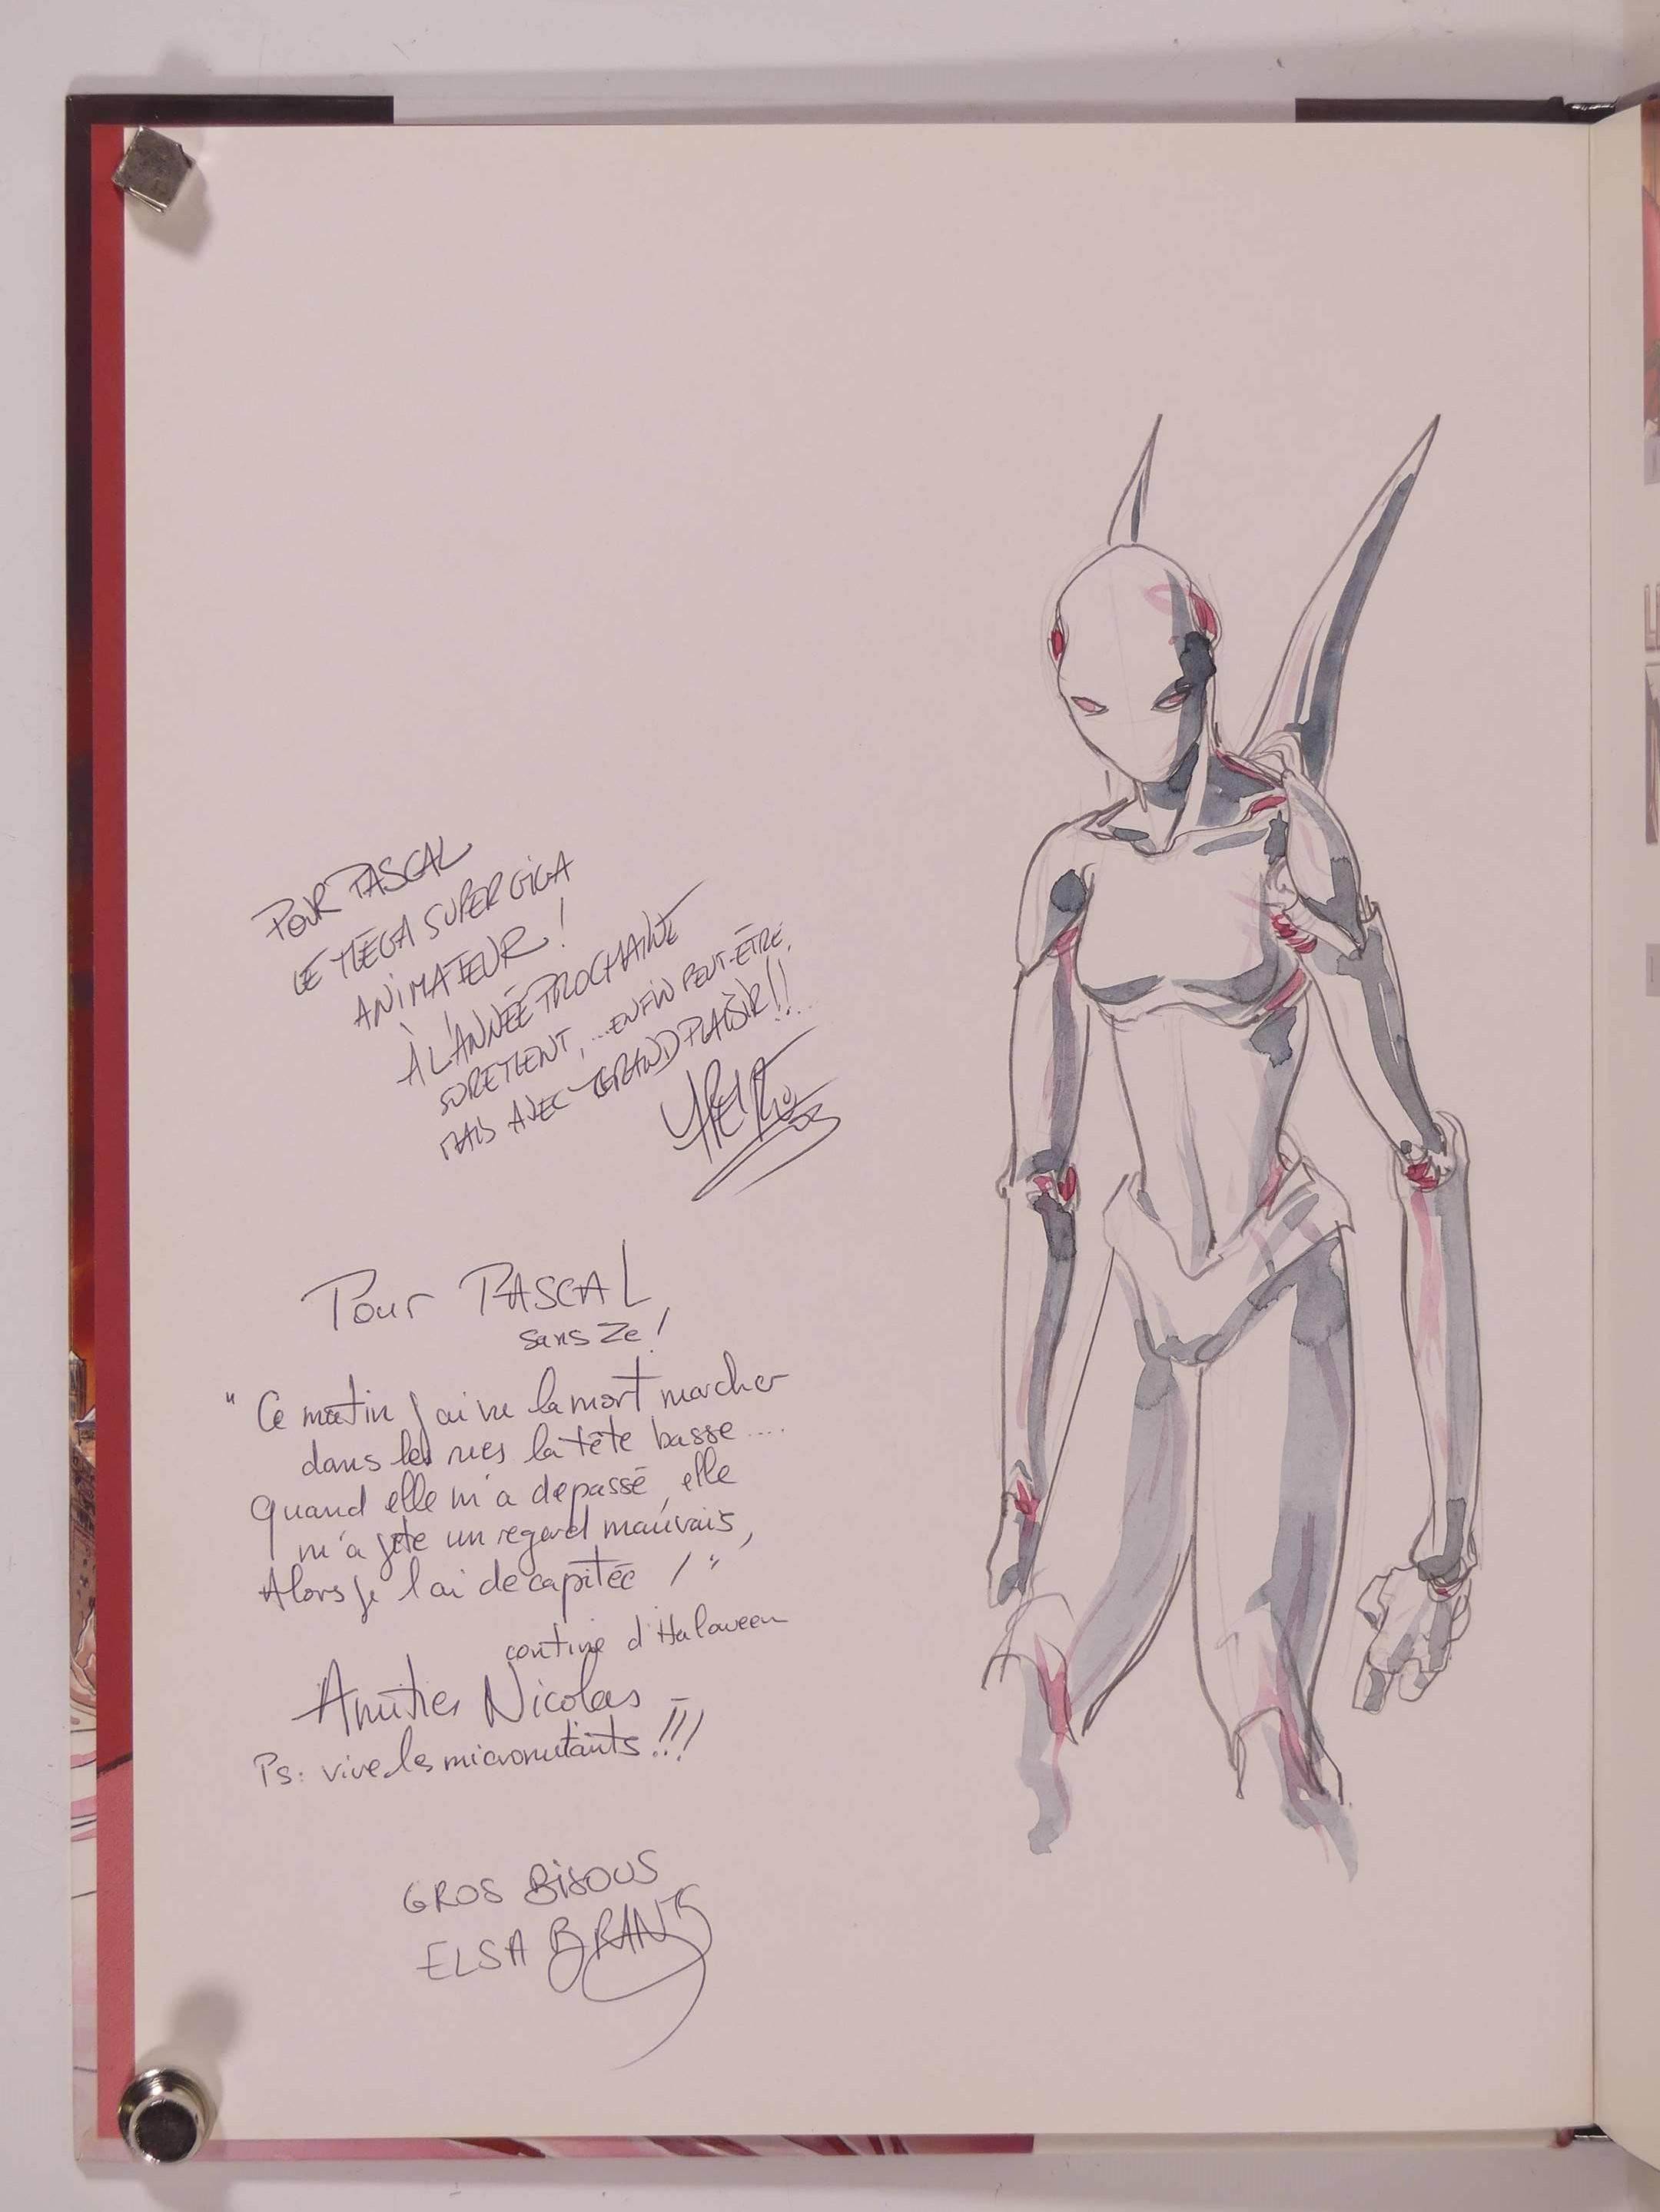 POUR PASCAL
LE MÉGA SUPER GIGA
ANIMATEUR !
À L'ANNÉE PROCHAINE
SUREMENT, ...ENFIN PEUT-ÊTRE,
MAIS AVEC GRAND PLAISIR !!...
03
Pour PASCAL
sans Ze !
" Ce matin j'ai vu la mort marcher
dans les rues la tête basse ....
quand elle m'a depassé, elle
m'a jeté un regard mauvais,
Alors je l'ai decapitée ! "
contine d'Haloween
Amitiés Nicolas
Ps: vive les micromutants !!!
GROS BISOUS
ELSA BRANTS